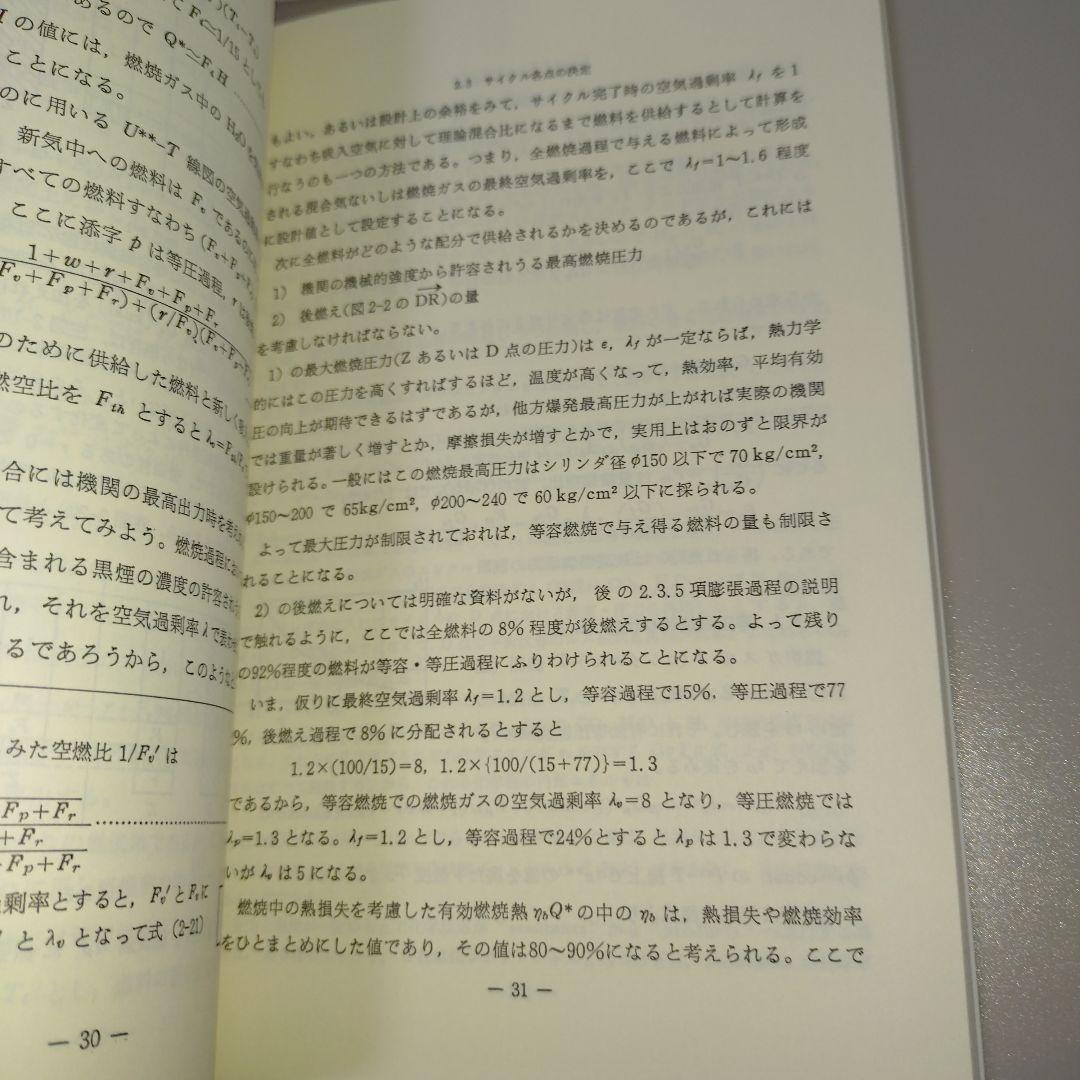 )(T₂−T₀)
F₀≃1/15 とし
あるので Q*≃F₀H
の値には, 燃焼ガス中の H₂O
ことになる。
のに用いる U**-T 線図の空気過剰
新気中への燃料は Fₒ であるのに
すべての燃料すなわち (Fᵥ+Fₚ+
ここに添字 p は等圧過程, r は
1+w+r+Fᵥ+Fₚ+Fᵣ
Fᵥ+Fₚ+Fᵣ)+(r/Fₒ)(Fᵥ+Fₚ
のために供給した燃料と新しく
燃空比を Fth とすると
合には機関の最高出力時を考え
て考えてみよう。燃焼過程に
含まれる黒煙の濃度の許容され
れ, それを空気過剰率 λ で表わ
るであろうから, このような
みた空燃比 1/Fᵥ′ は
Fₚ+Fᵣ
+Fᵣ
Fₚ+Fᵣ
過剰率とすると, Fᵥ′ と Fᵥ に
と λᵥ となって式 (2-21)
— 30 —
2.3 サイクル各点の決定
もよい。あるいは設計上の余裕をみて, サイクル完了時の空気過剰率 λf を 1
すなわち吸入空気に対して理論混合比になるまで燃料を供給するとして計算を
行なうのも一つの方法である。つまり, 全燃焼過程で与える燃料によって形成
される混合気ないしは燃焼ガスの最終空気過剰率を, ここで λf=1〜1.6 程度
に設計値として設定することになる。
次に全燃料がどのような配分で供給されるかを決めるのであるが, これには
1) 機関の機械的強度から許容されうる最高燃焼圧力
2) 後燃え(図2-2の DR→)の量
を考慮しなければならない。
1) の最大燃焼圧力(Z あるいは D 点の圧力)は ε, λf が一定ならば, 熱力学
的にはこの圧力を高くすればするほど, 温度が高くなって, 熱効率, 平均有効
圧の向上が期待できるはずであるが, 他方爆発最高圧力が上がれば実際の機関
では重量が著しく増すとか, 摩擦損失が増すとかで, 実用上はおのずと限界が
設けられる。一般にはこの燃焼最高圧力はシリンダ径 φ150 以下で 70 kg/cm²,
φ150〜200 で 65kg/cm², φ200〜240 で 60 kg/cm² 以下に採られる。
よって最大圧力が制限されておれば, 等容燃焼で与え得る燃料の量も制限さ
れることになる。
2) の後燃えについては明確な資料がないが, 後の 2.3.5 項膨張過程の説明
で触れるように, ここでは全燃料の 8% 程度が後燃えするとする。よって残り
の92%程度の燃料が等容・等圧過程にふりわけられることになる。
いま, 仮りに最終空気過剰率 λf=1.2 とし, 等容過程で15%, 等圧過程で77
%, 後燃え過程で 8% に分配されるとすると
1.2×(100/15)=8, 1.2×{100/(15+77)}=1.3
であるから, 等容燃焼での燃焼ガスの空気過剰率 λᵥ=8 となり, 等圧燃焼では
λₚ=1.3 となる。λf=1.2 とし, 等容過程で24%とすると λₚ は 1.3 で変わらな
いが λᵥ は 5 になる。
燃焼中の熱損失を考慮した有効燃焼熱 ηbQ* の中の ηb は, 熱損失や燃焼効率
をひとまとめにした値であり, その値は80〜90%になると考えられる。ここで
— 31 —